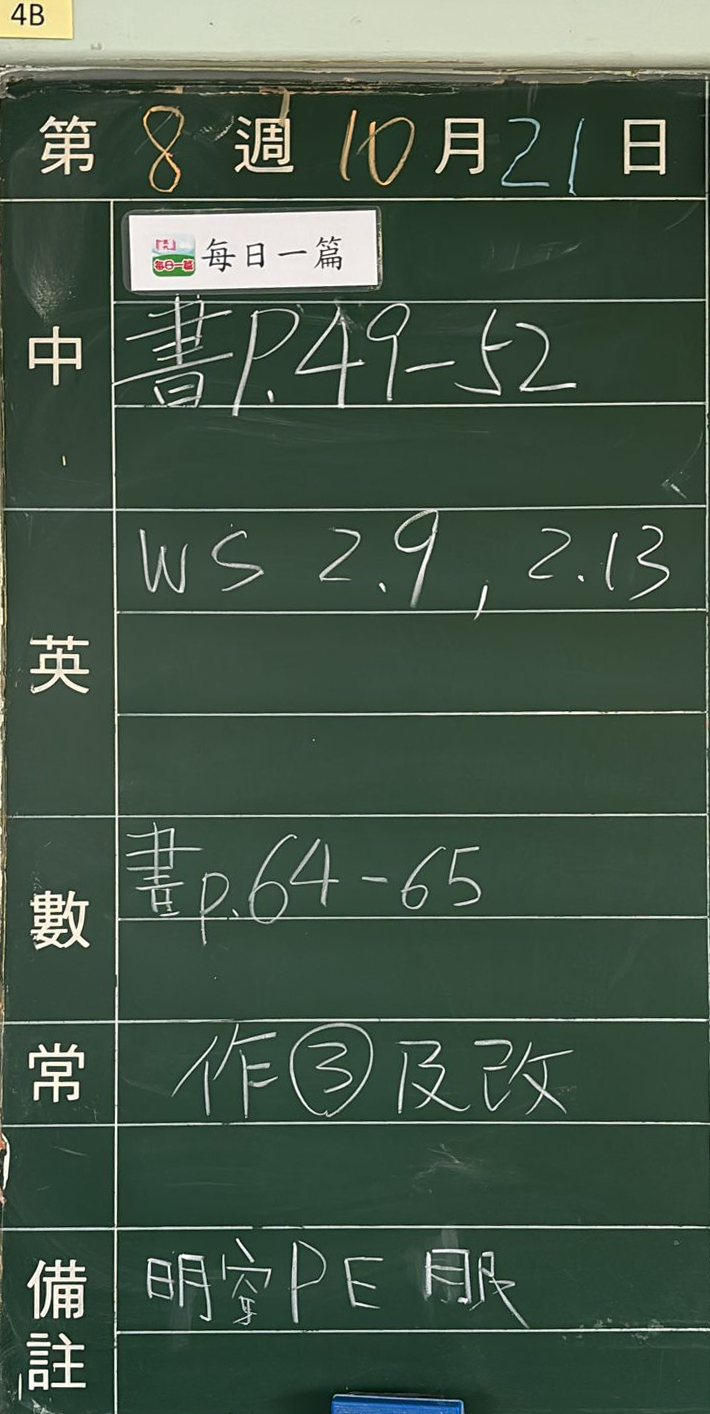 4B
第 8 週 10 月 21 日
中
每日一篇 每日一篇
書P.49-52
英
WS 2.9, 2.13
數
書p.64-65
常
作③及改
備註
明穿PE服